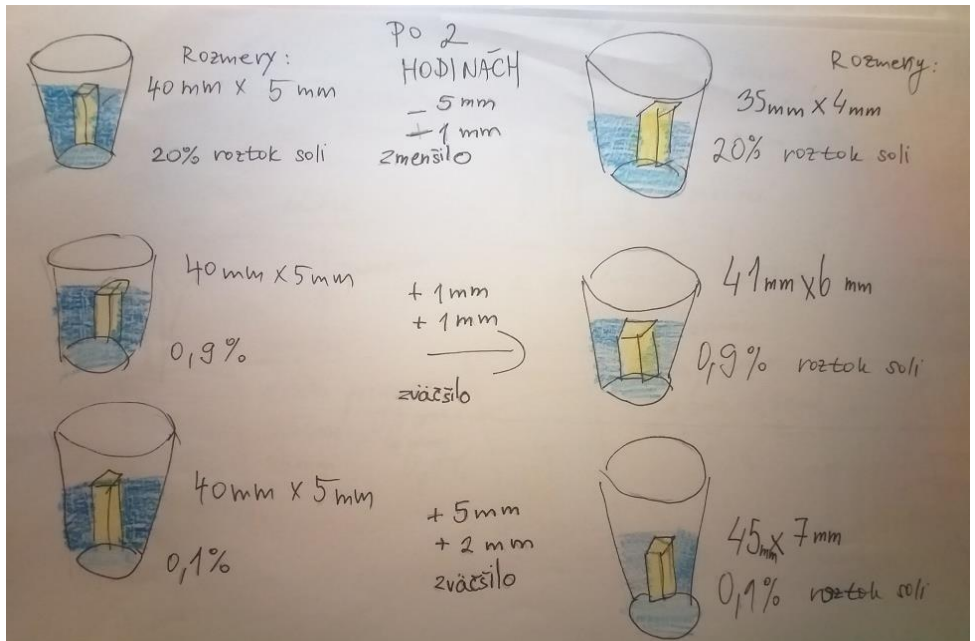 Rozmery:
40 mm x 5 mm
20% roztok soli
PO 2
HODINÁCH
- 5 mm
- 1 mm
zmenšilo
Rozmery:
35mm x 4mm
20% roztok soli
40 mm x 5mm
0,9%
+ 1mm
+ 1mm
zväčšilo
41mm x 6 mm
0,9% roztok soli
40mm x 5mm
0,1%
+ 5mm
+ 2 mm
zväčšilo
45mm x 7mm
0,1% roztok soli